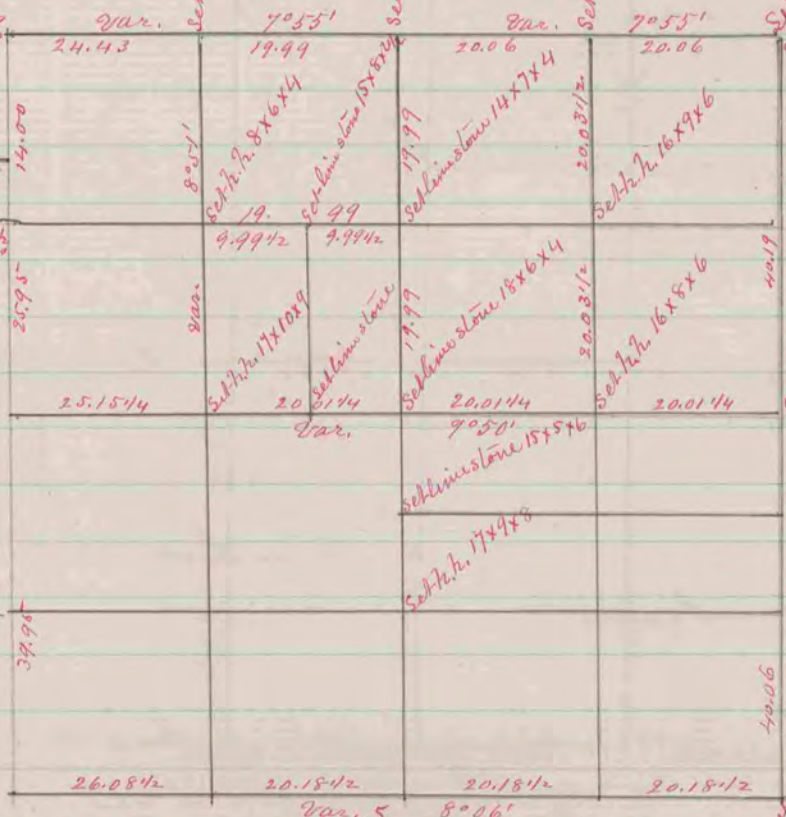 Var. 7°55' Var. 7°55'
24.43 19.99 20.06 20.06
14.00
8°51'
Set h.h. 8x6x4
Set lime stone 15x8x4
19.99
Set lime stone 14x7x4
20.03 1/2
Set h.h. 16x9x6
19. 99
9.99 1/2 9.99 1/2
25.95
Var.
Set h.h. 17x10x9
Set lime stone
19.99
Set lime stone 18x6x4
20.03 1/2
Set h.h. 16x8x6
40.19
25.15 1/4 20 01 1/4 20.01 1/4 20.01 1/4
Var. 9°50'
Set lime stone 15x5x6
Set h.h. 17x9x8
39.95
40.06
26.08 1/2 20.18 1/2 20.18 1/2 20.18 1/2
Var. 8°06'